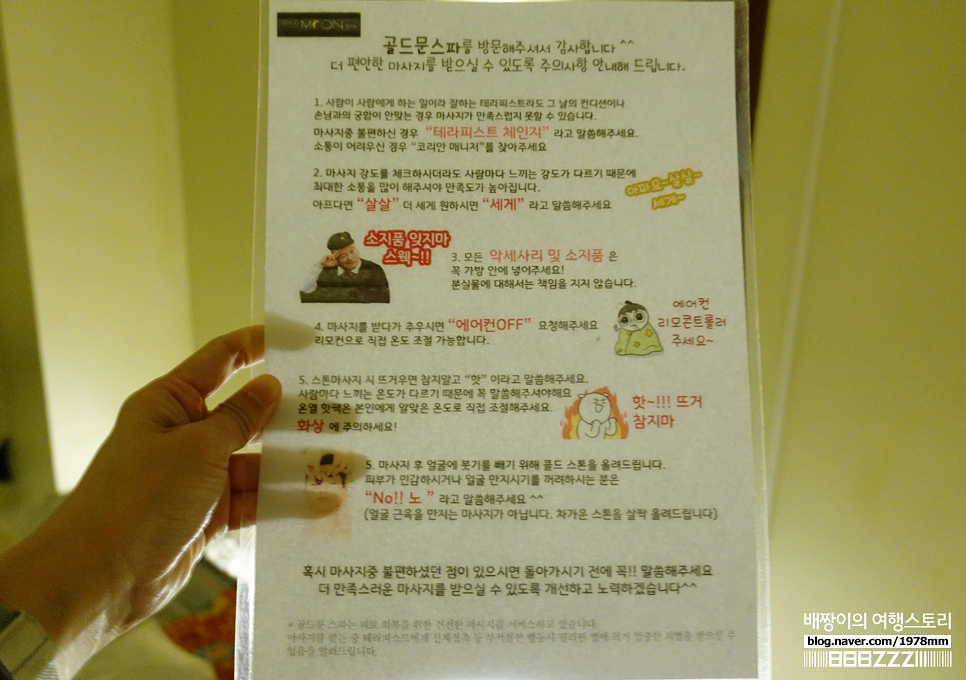 MOON
골드문스파를 방문해주셔서 감사합니다 ^^
더 편안한 마사지를 받으실 수 있도록 주의사항 안내해 드립니다.
1. 사람이 사람에게 하는 일이라 잘하는 테라피스트라도 그 날의 컨디션이나
손님과의 궁합이 안맞는 경우 마사지가 만족스럽지 못할 수 있습니다.
마사지중 불편하신 경우 “테라피스트 체인지” 라고 말씀해주세요.
소통이 어려우신 경우 “코리안 매니저”를 찾아주세요
2. 마사지 강도를 체크하시더라도 사람마다 느끼는 강도가 다르기 때문에
최대한 소통을 많이 해주셔야 만족도가 높아집니다.
아프다면 “살살” 더 세게 원하시면 “세게” 라고 말씀해주세요
아파요~살살~
세게~
소지품 잊지마
스웩~!!
3. 모든 악세사리 및 소지품 은
꼭 가방 안에 넣어주세요!
분실물에 대해서는 책임을 지지 않습니다.
4. 마사지를 받다가 추우시면 “에어컨OFF” 요청해주세요
리모컨으로 직접 온도 조절 가능합니다.
에어컨
리모콘트롤러
주세요~
5. 스톤마사지 시 뜨거우면 참지말고 “핫” 이라고 말씀해주세요.
사람마다 느끼는 온도가 다르기 때문에 꼭 말씀해주셔야해요
온열 핫팩은 본인에게 알맞은 온도로 직접 조절해주세요.
화상 에 주의하세요!
핫~!!! 뜨거
참지마
5. 마사지 후 얼굴에 붓기를 빼기 위해 콜드 스톤을 올려드립니다.
피부가 민감하시거나 얼굴 만지시기를 꺼려하시는 분은
“No!! 노 ” 라고 말씀해주세요 ^^
(얼굴 근육을 만지는 마사지가 아닙니다. 차가운 스톤을 살짝 올려드립니다)
혹시 마사지중 불편하셨던 점이 있으시면 돌아가시기 전에 꼭!! 말씀해주세요
더 만족스러운 마사지를 받으실 수 있도록 개선하고 노력하겠습니다^^
* 골드문 스파는 피로 회복을 위한 건전한 마사지를 서비스하고 있습니다.
마사지를 받는 중 테라피스트에게 신체접촉 등 부적절한 행동시 필리핀 법에 의거 엄중한 처벌을 받으실 수
있음을 알려드립니다.
배짱이의 여행스토리
blog.naver.com/1978mm
BBBZZZ